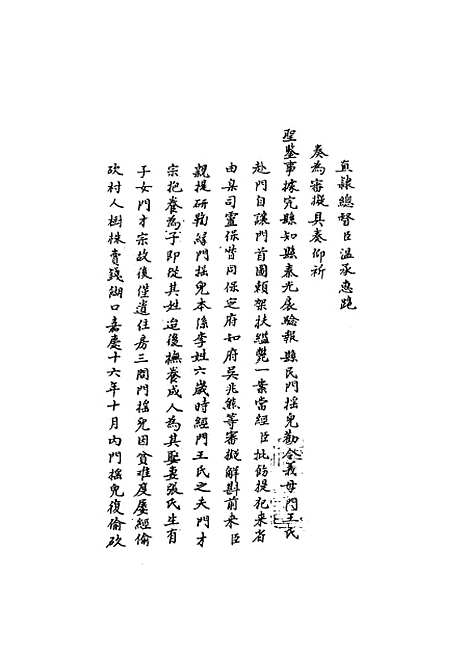 直隸總督臣溫承惠跪
奏為審擬具奏仰祈
聖鑒事據完縣知縣秦光展驗報縣民門搖兒勸令義母門王氏
赴門自讓門首圖賴架扶縊斃一案當經臣批飭提犯來省
由臬司靈保督同保定府知府吳兆熊等審擬解勘前來臣
親提研鞫緣門搖兒本係李姓六歲時經門王氏之夫門才
宗抱養為子即從其姓迨後撫養成人為其娶妻張氏生有
子女門才宗故後僅遺住房三間門搖兒因貧難度屢經偷
砍村人樹株賣錢餬口嘉慶十六年十月內門搖兒復偷砍